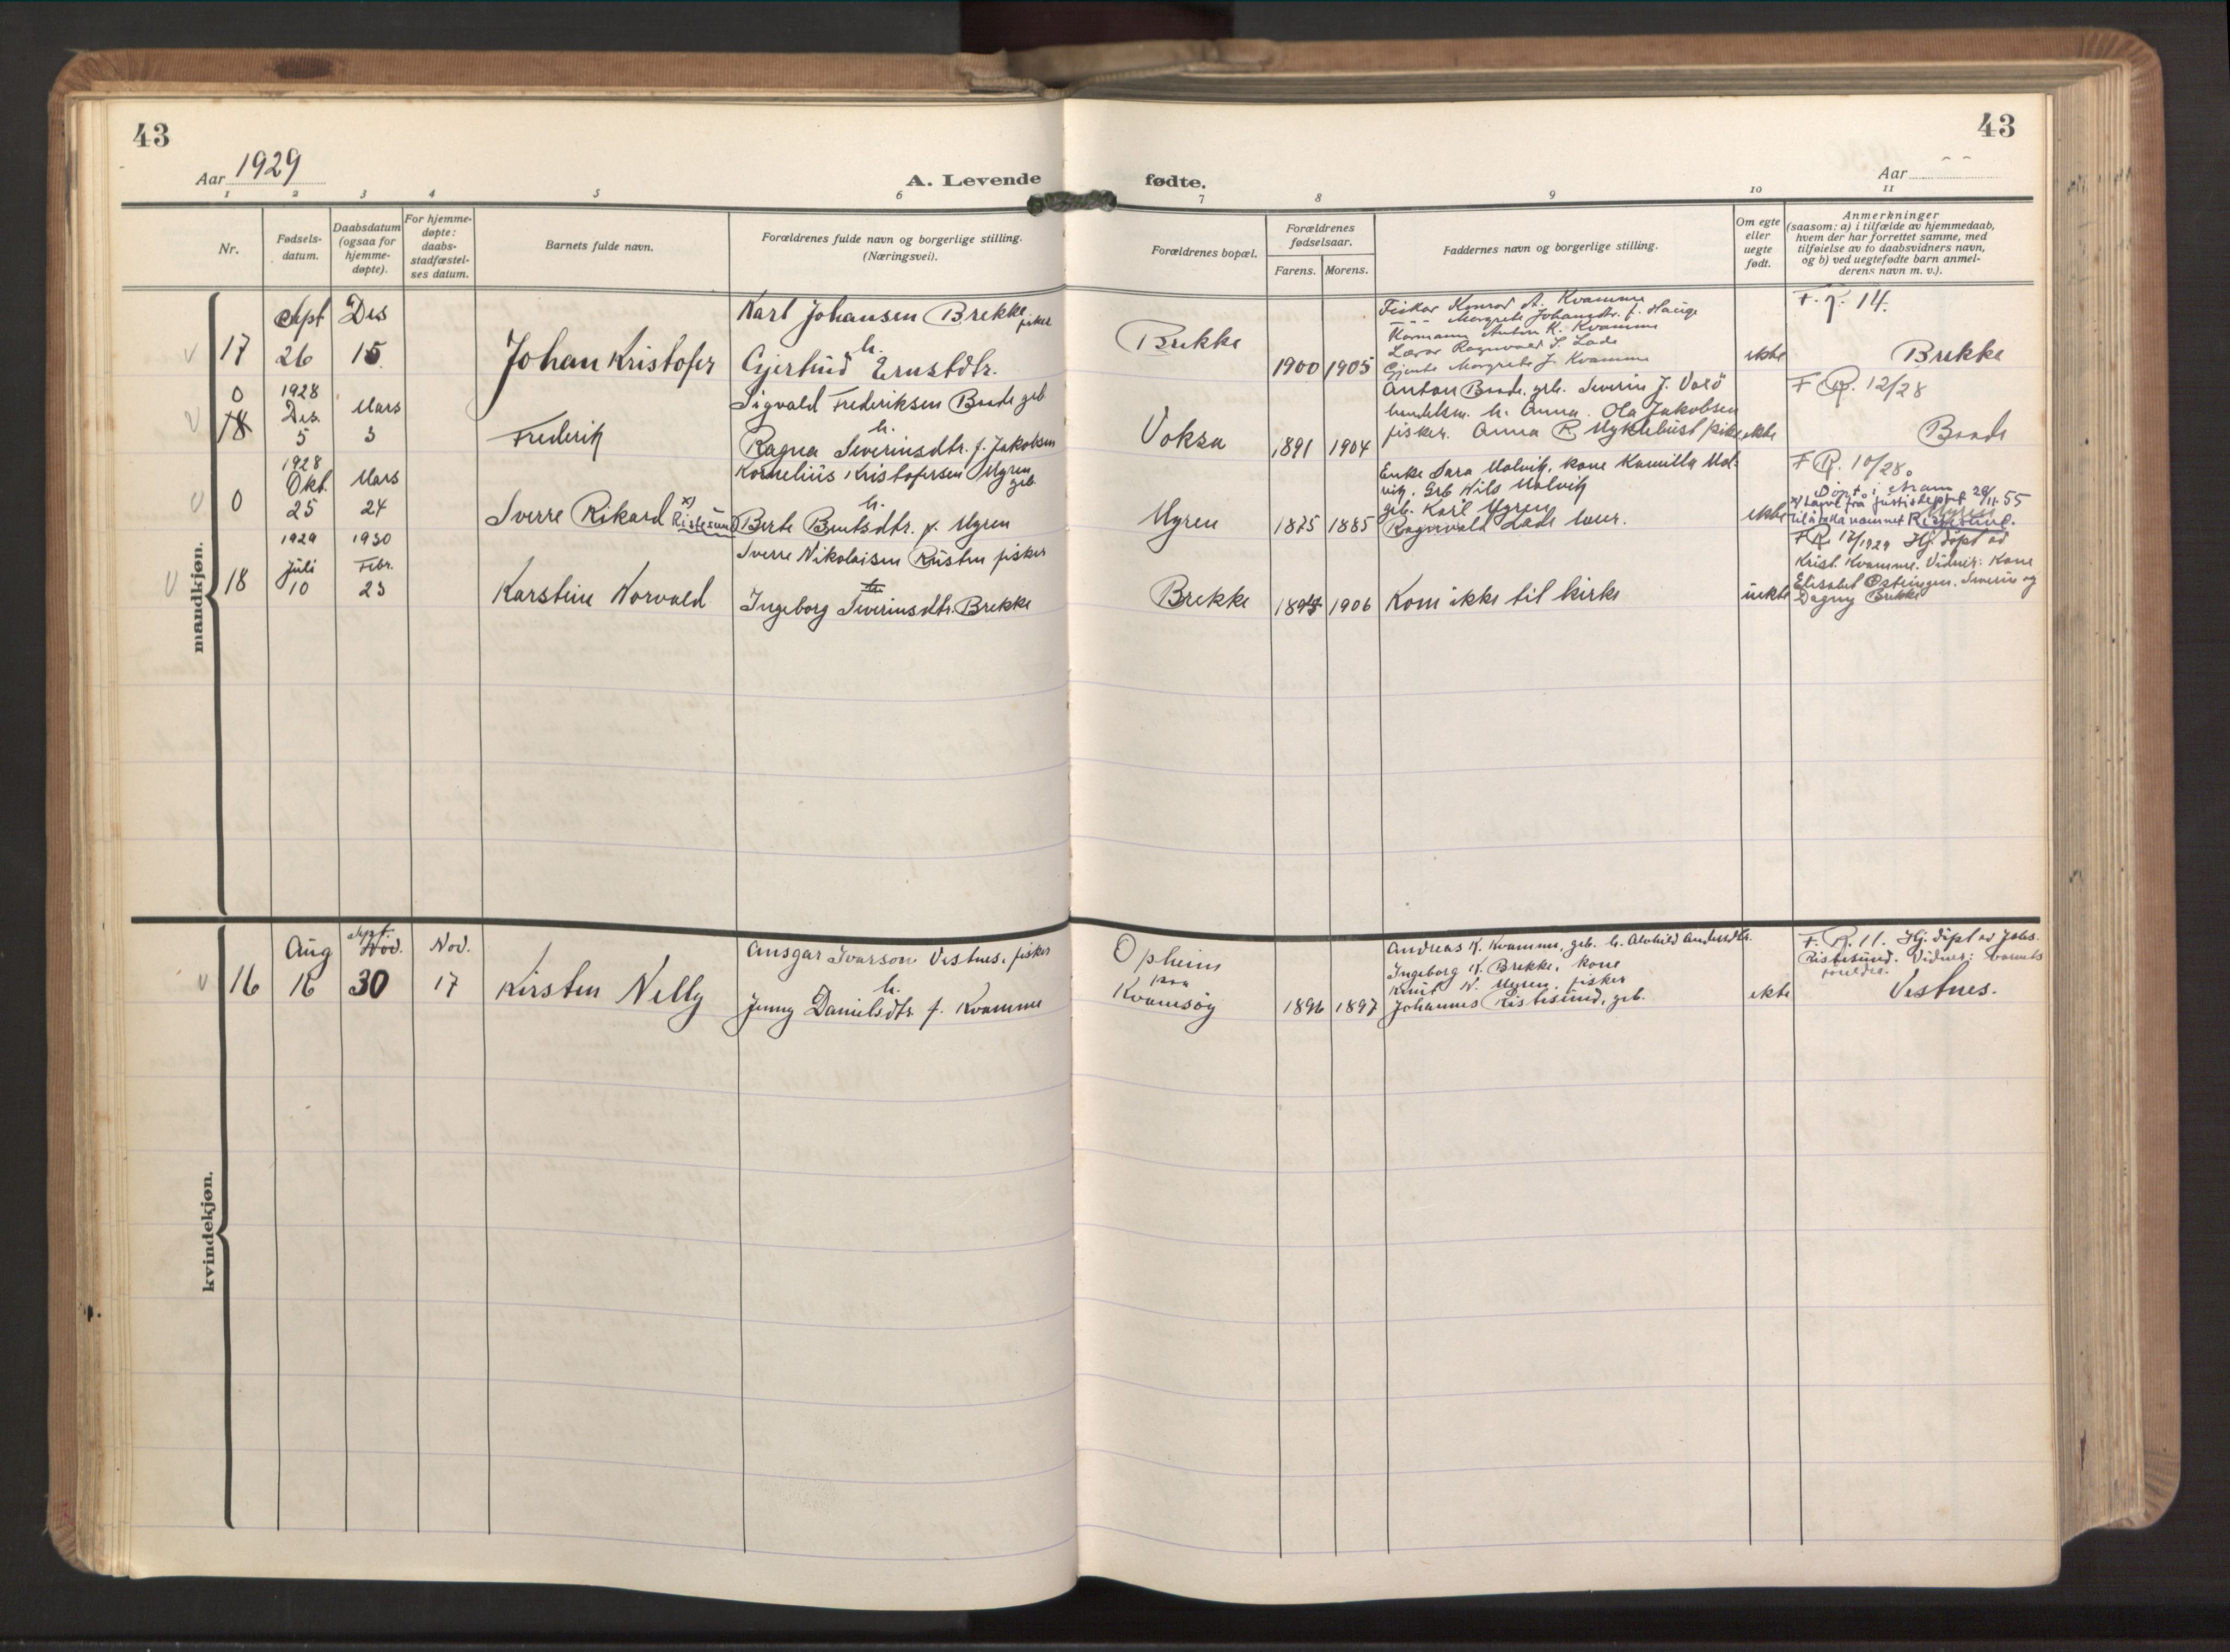 43
43
Aar 1929
A. Levende
fødte.
Aar
1 2 3 4 5 6 7 8 9 10 11
Nr.
Fødsels-
datum.
Daabsdatum
(ogsaa for
hjemme-
døpte).
For hjemme-
døpte:
daabs-
stadfæstel-
ses datum.
Barnets fulde navn.
Forældrenes fulde navn og borgerlige stilling.
(Næringsvei).
Forældrenes bopæl.
Forældrenes
fødselsaar.
Farens. Morens.
Faddernes navn og borgerlige stilling.
Om egte
eller
uegte
født.
Anmerkninger
(saasom: a) i tilfælde av hjemmedaab,
hvem der har forrettet samme, med
tilføielse av to daabsvidners navn,
og b) ved uegtefødte barn anmel-
derens navn m. v.).
mandkjøn.
17
Sept
26
Des
15
Johan Kristofer
Karl Johansen Brekke fisker
h.
Gjertrud Ernstdtr.
Brekke
1900 1905
Fisker Konrad A. Kvamme
Margrete Johansdtr. f. Hauge
Anton K. Kvamme
Lærar Ragnvald S. Lade
Gjente Margrete J. Kvamme
ekte
F. R. 14.
Brekke
0
18
1928
Des.
5
Mars
3
Frederik
Sigvald Frederiksen Baade grb
h.
Ragna Severinsdtr. f. Jakobsen
Voksa
1891 1904
Anton Baade, grb. Severin J. Voksø
handelsm. h. Anna. Ola Jakobsen
fisker. Anna R. Myklebust pike
ekte
F. R. 12/28
Baade
0
1928
Okt.
25
Mars
24
Sverre Rikard x) Ristesund
Kornelius Kristofersen Myren
grb.
h.
Berte Bentsdtr. f. Myren
Myren
1875 1885
Enke Sara Malvik, kone Kamilla Mal-
vik. Grb Nils Malvik
grb. Karl Myren
Ragnvald Lade lærer.
ekte
F. R. 10/28.
Döpt i Aram
x) Løyve frå Justisdeptet 29/11.55
Myren
til å ta namnet Ristesund.
18
1929
Juli
10
1930
Febr.
23
Karstein Norvald
Sverre Nikolaisen Rusten fisker
Ingeborg Severinsdtr. Brekke
Brekke
1906
Kom ikke til kirke
uekte
F. R. 12/1929 Hj. döpt av
Krist. Kvamme. Vidner: Kone
Elisabet Osteingen. Severin og
Dagny Brekke
kvindekjøn.
16
Aug
16
Sept.
Nov.
30
Nov.
17
Kirsten Nelly
Ansgar Ivarson Vestnes, fisker
h.
Jenny Danielsdtr f. Kvamme
Opheim
paa
Kvamsøy
1896 1897
Andreas K. Kvamme, grb. h. Alvhild Andersdtr.
Ingeborg K. Brekke, kone
Knut N. Myren, fisker
Johannes Ristesund, grb.
ekte
F. R. 11. Hj. döpt av Johs.
Ristesund. Vidner: barnets
foreldre.
Vestnes.